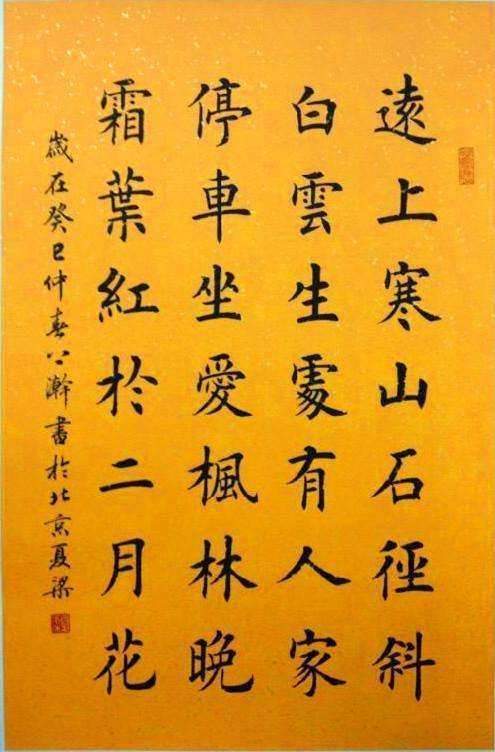 遠上寒山石徑斜
白雲生處有人家
停車坐愛楓林晚
霜葉紅於二月花
歲在癸巳仲春公瀚書於北京夏梁